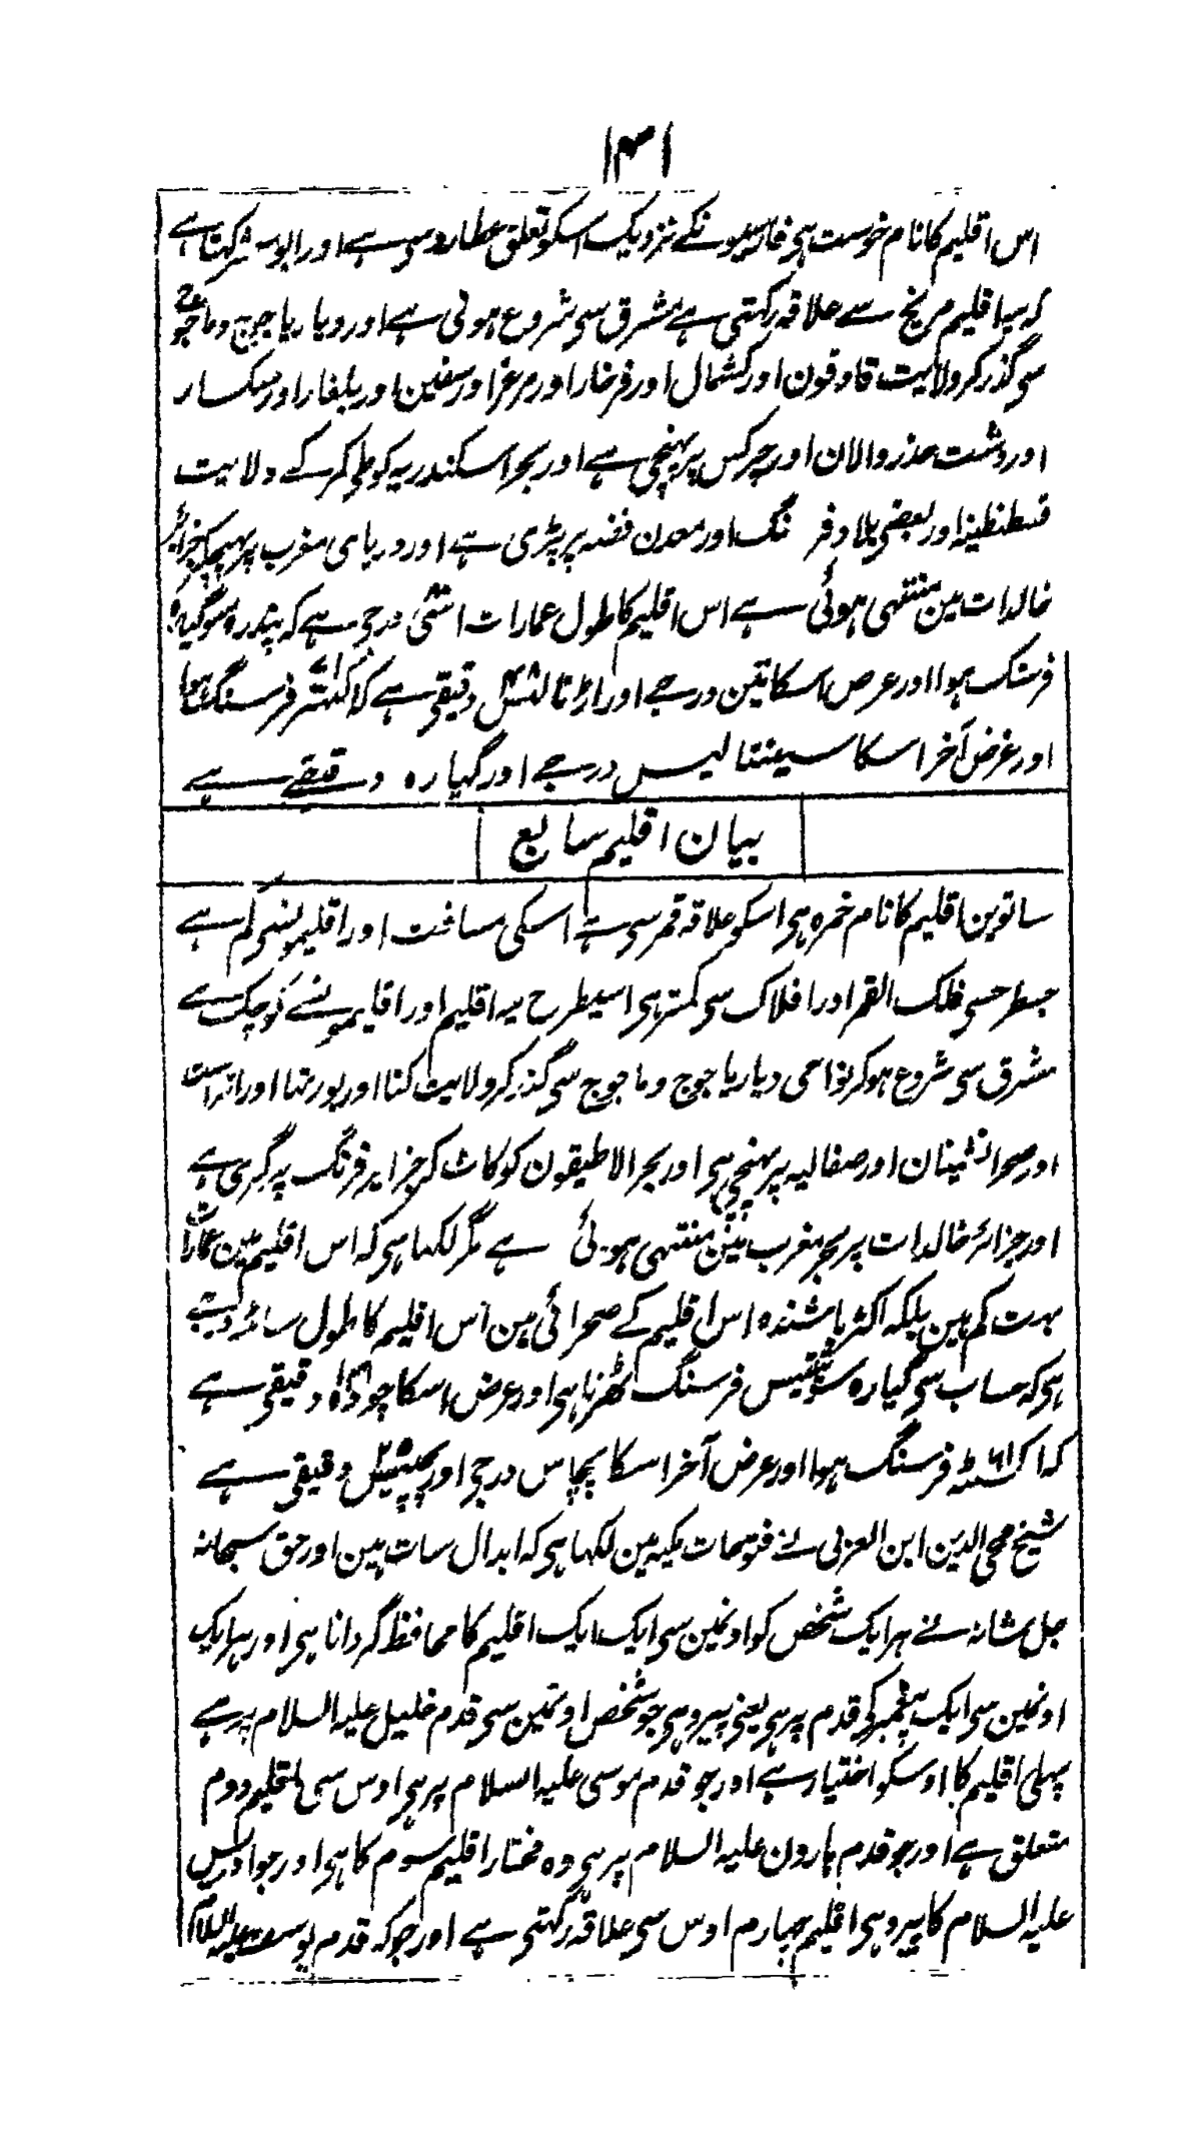 ۱۳۱
اس اقلیم کا نام خوست ہی فارسیونکے نزدیک اسکو تعلق عطارد سی ہے اور ابو معشر کہتا ہے
کہ یہ اقلیم مریخ سے علاقہ رکہتی ہے مشرق سی شروع ہوتی ہے اور دیار یاجوج و ماجوج
سی گذر کر ولایت قاوقون اور کشمال اور فرخار اور مرغز اور سفین اور بلغار اور سکسار
اور دشت خزر والان اور چرکس پر پہنچی ہے اور بحر اسکندریہ کو طی کر کے ولایت
قسطنطنیہ اور بعضی بلاد فرنگ اور معدن فضہ پر پڑی ہے اور دریای مغرب پر پہنچکر جزائر
خالدات مین منتہی ہوئی ہے اس اقلیم کا طول عمارات اسّی درجی ہے کہ پندرہ سو گیارہ
فرسنگ ہوا اور عرض اسکا تین درجے اور اڑتالیس دقیقی ہے کہ اکہتر فرسنگ ہوا
اور عرض آخر اسکا سینتالیس درجے اور گیارہ دقیقے ہے
بیان اقلیم سابع
ساتوین اقلیم کا نام خمرہ ہی اسکو علاقہ قمر سی ہے اسکی مسافت اور اقلیمونسی کم ہے
جسطرحسی فلک القمر اور افلاک سی کمتر ہی اسیطرح یہ اقلیم اور اقالیمونسے کوچک ہے
مشرق سی شروع ہوکر نواحی دیار یاجوج و ماجوج سی گذر کر ولایت کنا اور بورتنا اور
اور صحرا نشینان اور صفالیہ پر پہنچی ہی اور بحر الاطیقون کو کاٹ کر جزایر فرنگ پر گری ہے
اور جزائر خالدات پر بحر مغرب مین منتہی ہوئی ہے مگر لکہا ہی کہ اس اقلیم مین عمارات
بہت کم ہین بلکہ اکثر باشندہ اس اقلیم کے صحرائی ہین اس اقلیم کا طول ساٹھ درجے
ہی کہ حساب سی گیارہ سو تیتیس فرسنگ ٹھرتا ہی اور عرض اسکا چودہ دقیقی ہے
کہ اکسٹھہ فرسنگ ہوا اور عرض آخر اسکا پچاس درجی اور پچیس دقیقی ہے
شیخ محی الدین ابن العربی نے فتوحات مکیہ مین لکہا ہی کہ ابدال سات ہین اور حق سبحانہ
جل شانہ نے ہر ایک شخص کو اونمین سی ایک ایک اقلیم کا محافظ گردانا ہی اور ہر ایک
اونمین سی ایک پیغمبر کی قدم پر ہی یعنی پیرو ہی جو شخص اونمین سی قدم خلیل علیہ السلام پر ہے
پہلی اقلیم کا اوسکو اختیار ہے اور جو قدم موسی علیہ السلام پر ہی اوس سی اقلیم دوم
متعلق ہے اور جو قدم ہارون علیہ السلام پر ہی وہ مختار اقلیم سوم کا ہی اور جو ادریس
علیہ السلام کا پیرو ہی اقلیم چہارم اوس سی علاقہ رکہتی ہے اور جو کہ قدم یوسف علیہ السلام